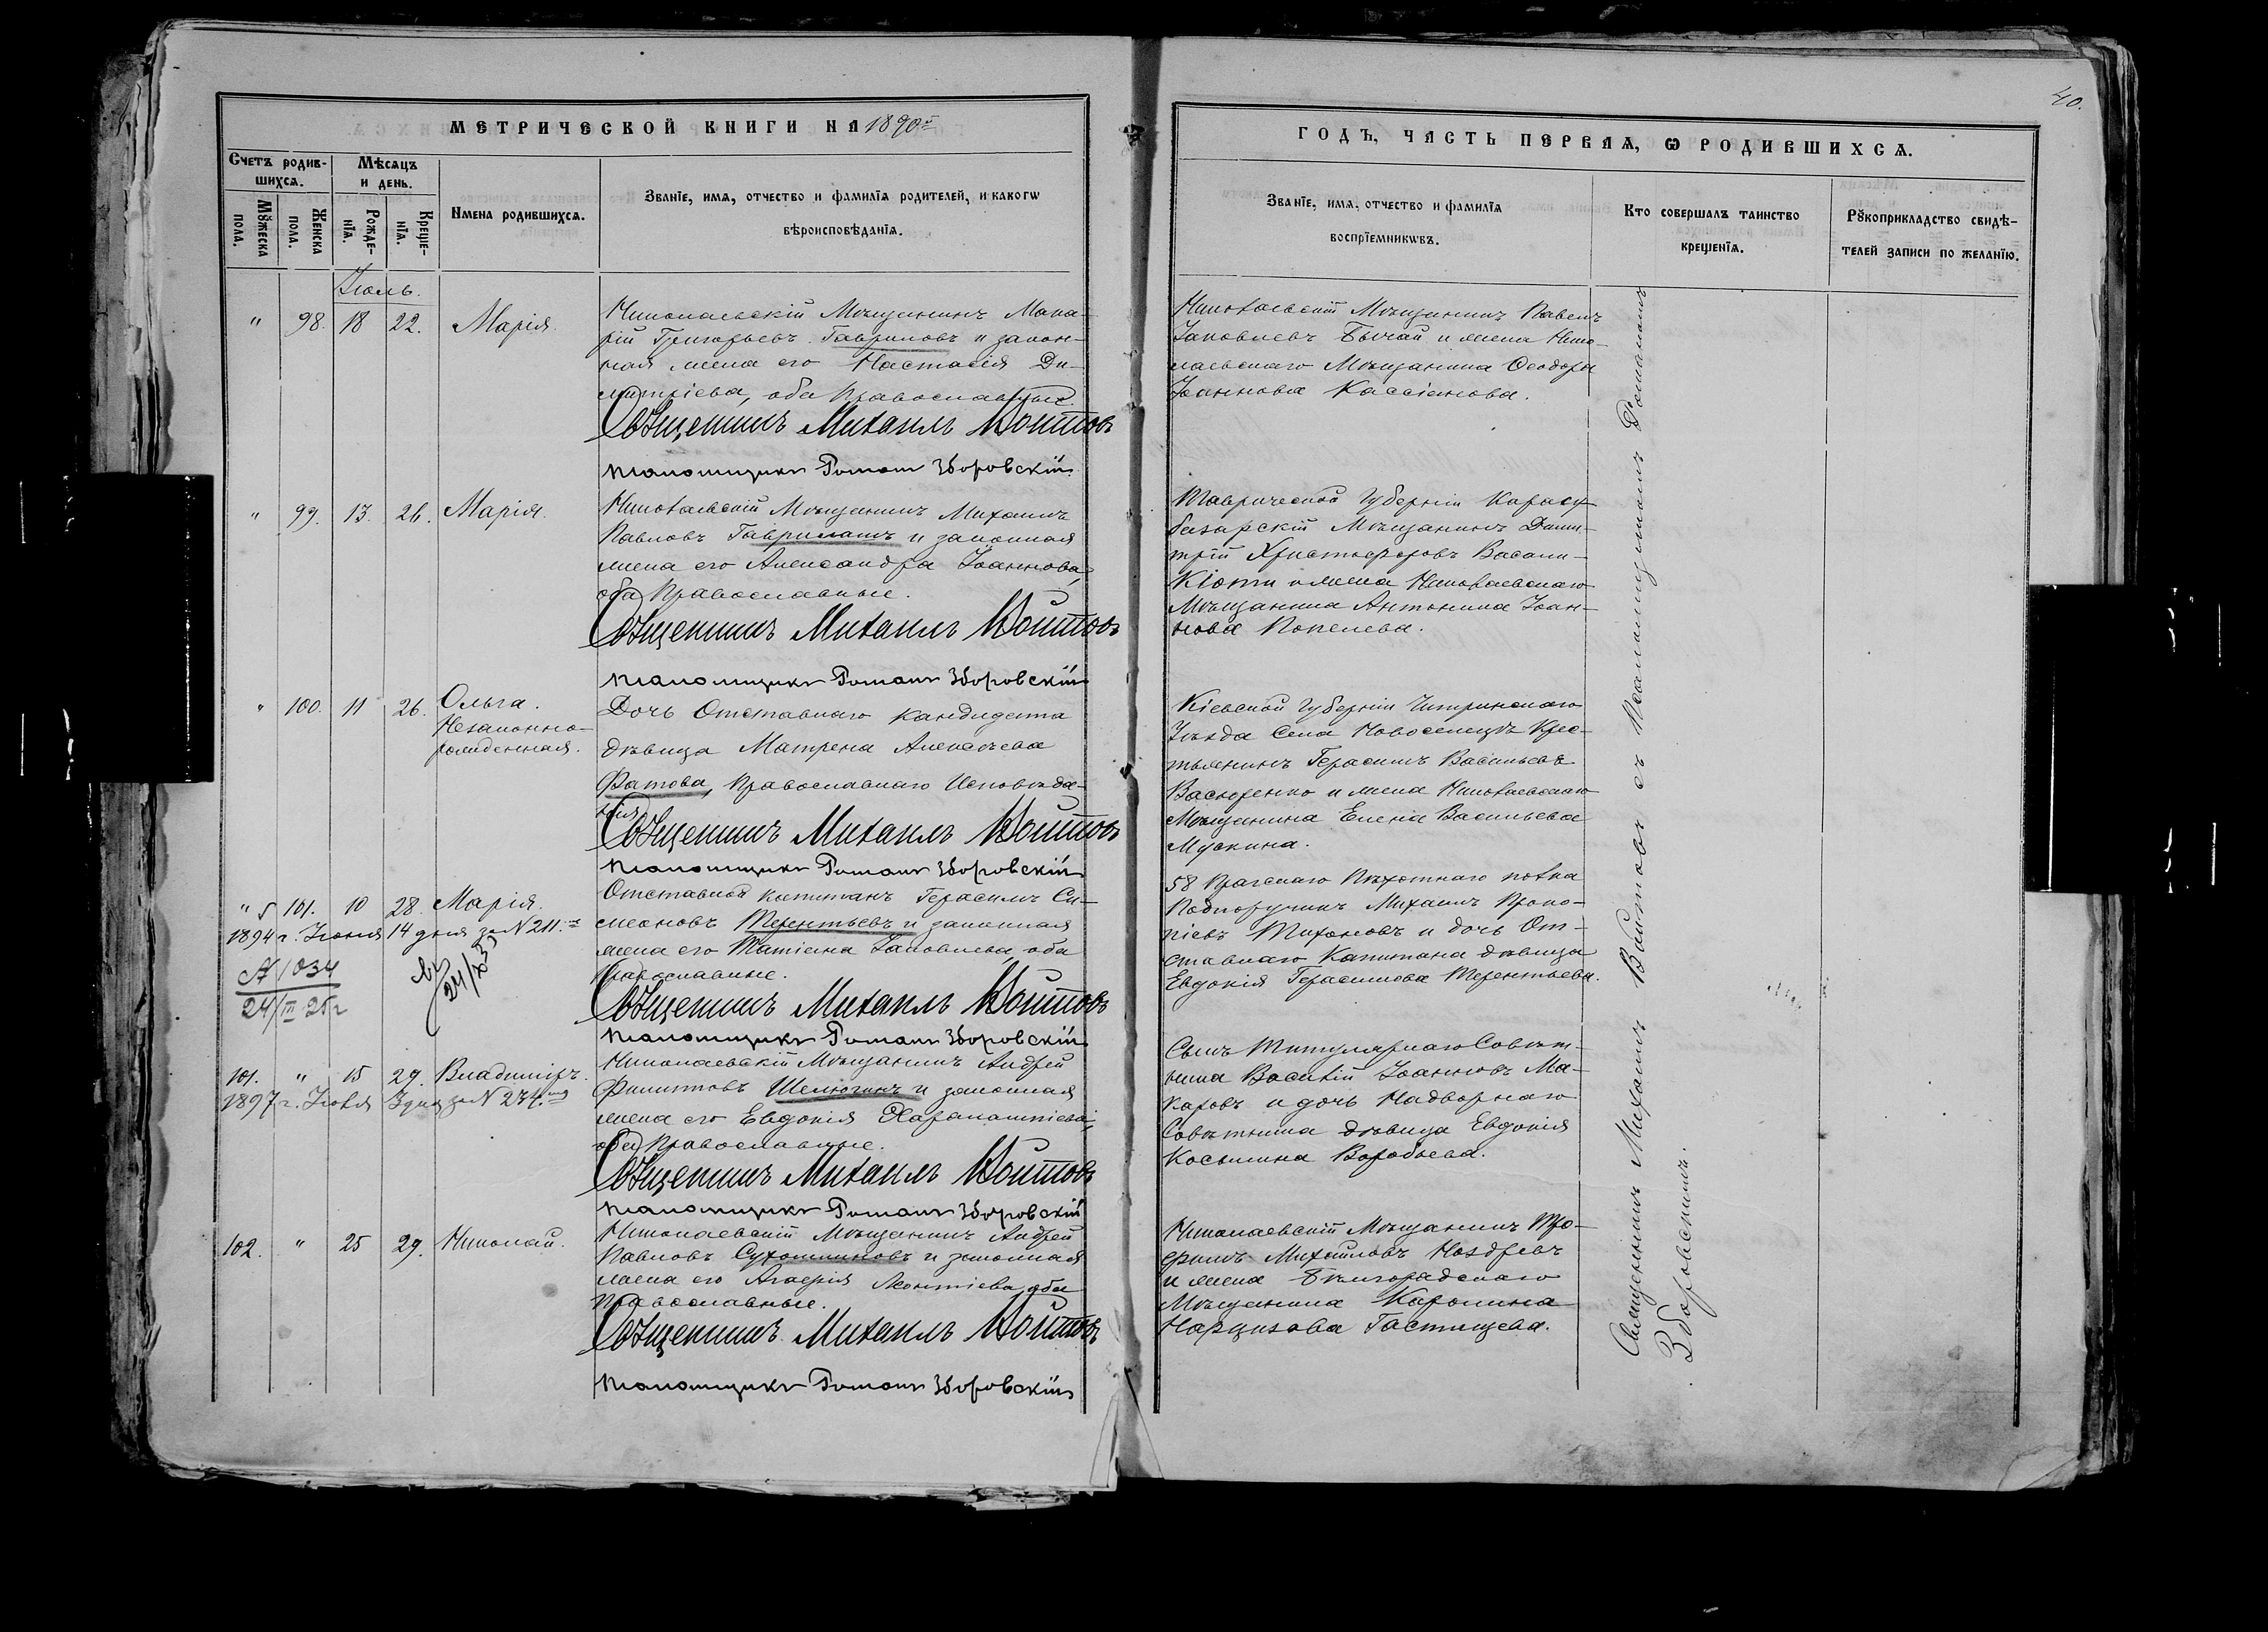 МЕТРИЧЕСКОЙ КНИГИ НА 1890й
Счетъ родив-
шихся.
Мѣсяцъ
и день.
Мужеска
пола.
Женска
пола.
Рожде-
нія.
Креще-
нія.
Имена родившихся.
Званіе, имя, отчество и фамилія родителей, и какогѡ
вѣроисповѣданія.
Іюль.
" 98. 18 22. Марія.
Николаевскій Мѣщанинъ Мака-
рій Григорьевъ Гавриловъ и закон-
ная жена его Настасія Ди-
митріева, оба Православные.
Священникъ Михаилъ Воитовъ
Псаломщикъ Романъ Зборовскій
" 99. 13. 26. Марія.
Николаевскій Мѣщанинъ Михаилъ
Павловъ Гаврилашъ и законная
жена его Александра Іоаннова,
оба Православные.
Священникъ Михаилъ Воитовъ
Псаломщикъ Романъ Зборовскій
" 100. 11 26. Ольга.
Незаконно-
рожденная.
Дочь Отставнаго Кандидата
дѣвица Матрена Алексѣева
Фатова, Православнаго Исповѣда-
нія
Священникъ Михаилъ Воитовъ
Псаломщикъ Романъ Зборовскій
" 101. 10 28. Марія.
1894 г. Іюня 14 дня за N 211.
Отставной Капитанъ Герасимъ Си-
меоновъ Терентьевъ и законная
жена его Татіана Іаковлева, оба
Православные.
1034
24/III-25г
24/X
Священникъ Михаилъ Воитовъ
Псаломщикъ Романъ Зборовскій
101. " 15 29. Владиміръ.
1897 г. Іюля 3 дня за N 274.
Николаевскій Мѣщанинъ Андрей
Филиповъ Шелюгинъ и законная
жена его Евдокія Харалампіева,
оба Православные.
Священникъ Михаилъ Воитовъ
Псаломщикъ Романъ Зборовскій
102. " 25 29. Николай.
Николаевскій Мѣщанинъ Андрей
Павловъ Сухомлиновъ и законная
жена его Агафія Леонтіева, оба
Православные.
Священникъ Михаилъ Воитовъ
Псаломщикъ Романъ Зборовскій
40.
ГОДЪ, ЧАСТЬ ПЕРВАЯ, Ѡ РОДИВШИХСЯ.
Званіе, имя, отчество и фамилія
воспріемникѡвъ.
Кто совершалъ таинство
крещенія.
Рукоприкладство свидѣ-
телей записи по желанію.
Николаевскій Мѣщанинъ Павелъ
Іаковлевъ Бычай и жена Нико-
лаевскаго Мѣщанина Ѳеодора
Іоаннова Кассіанова.
Таврической Губерніи Карасу-
базарскій Мѣщанинъ Дими-
трій Христофоровъ Васили-
Кіоти и жена Николаевскаго
Мѣщанина Антонина Іоан-
нова Копелева.
Кіевской Губерніи Чигринскаго
Уѣзда Села Новоселицъ Крес-
тьянинъ Герасимъ Васильевъ
Васюренко и жена Николаевскаго
Мѣщанина Елена Васильева
Мускина.
58 Прагскаго Пѣхотнаго полка
Подпоручикъ Михаилъ Проко-
піевъ Тихоновъ и дочь От-
ставнаго Капитана дѣвица
Евдокія Герасимова Терентьева.
Сынъ Титулярнаго Совѣт-
ника Василій Іоанновъ Ма-
каровъ и дочь Надворнаго
Совѣтника дѣвица Евдокія
Косьмина Воробьева.
Николаевскій Мѣщанинъ Тро-
фимъ Михайловъ Ноздревъ
и жена Бѣлгородскаго
Мѣщанина Каролина
Нарцизова Гастищева.
Священникъ Михаилъ Воитовъ съ Псаломщикомъ Романомъ
Зборовскимъ.